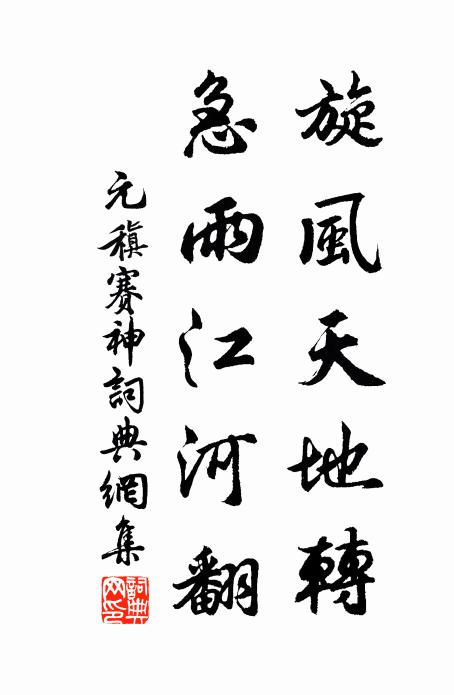 旋風天地轉
急雨江河翻
元稹賽神詞典網集
詞典
网印